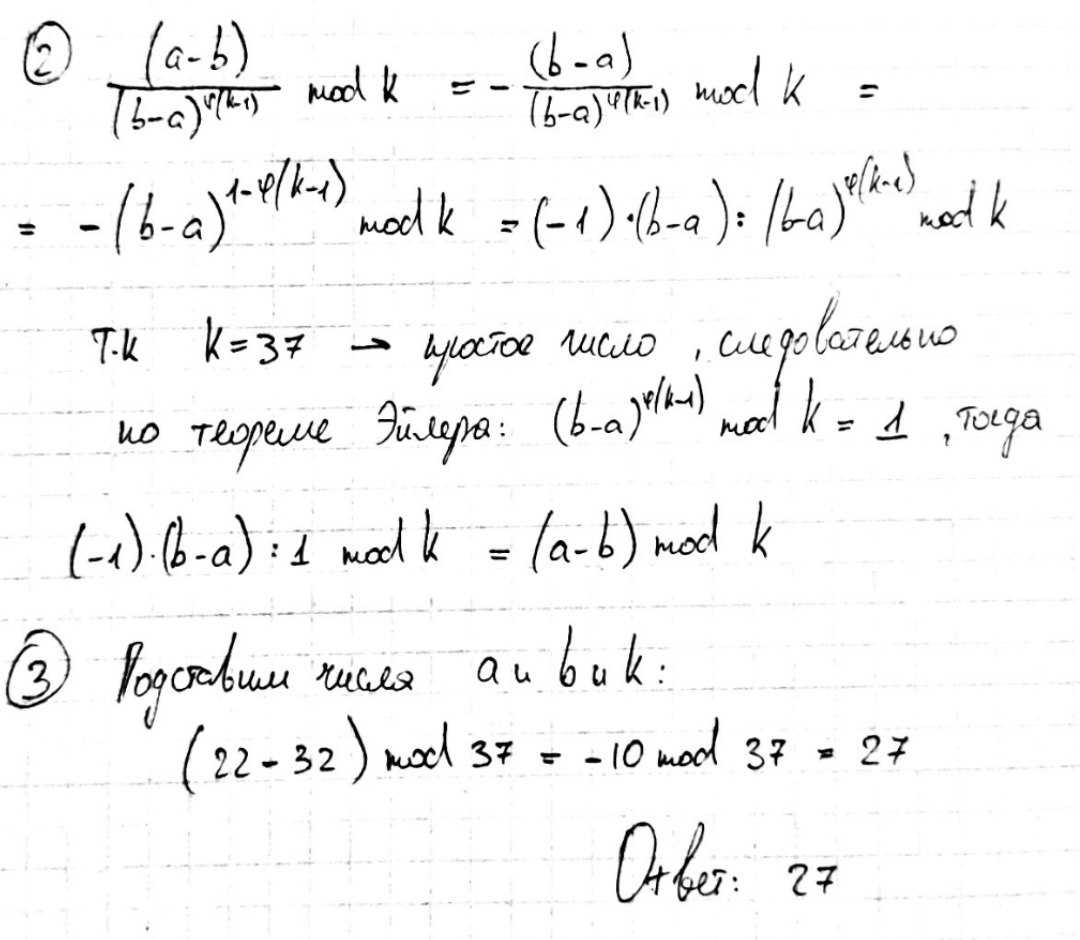 ② (a-b) / (b-a)^φ(k-1) mod k = - (b-a) / (b-a)^φ(k-1) mod k =
= -(b-a)^1-φ(k-1) mod k = (-1)·(b-a) : (b-a)^φ(k-1) mod k
Т.к k=37 → простое число, следовательно
по теореме Эйлера: (b-a)^φ(k-1) mod k = 1, тогда
(-1)·(b-a) : 1 mod k = (a-b) mod k
③ Подставим числа a и b и k:
(22-32) mod 37 = -10 mod 37 = 27
Ответ: 27